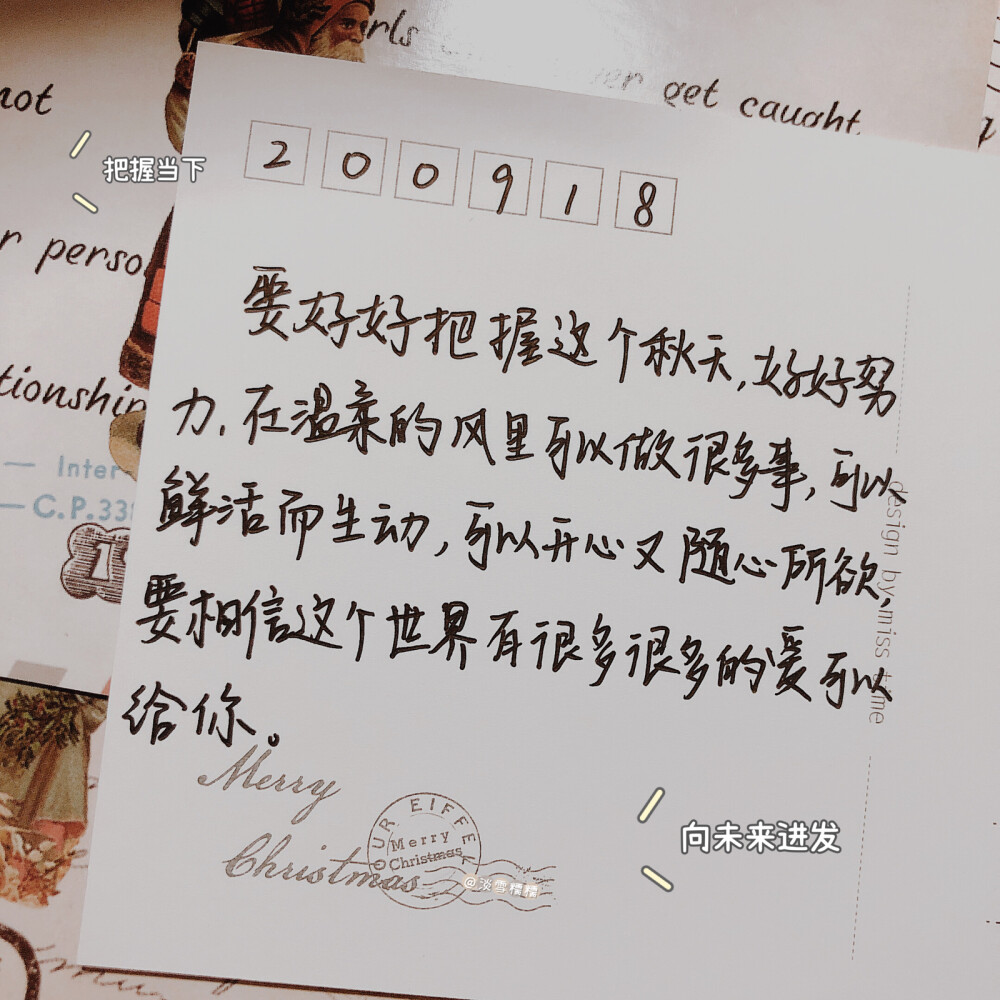 rls
er get caught
not
把握当下
200918
r perso
要好好把握这个秋天,好好努
力,在温柔的风里可以做很多事,可以
鲜活而生动,可以开心又随心所欲,
要相信这个世界有很多很多的爱可以
给你。
tionship
— Inter-
— C.P.331
design by miss time
Merry
Christmas
TOUR EIFFEL
Merry
Christmas
@淡雪糯糯
向未来进发